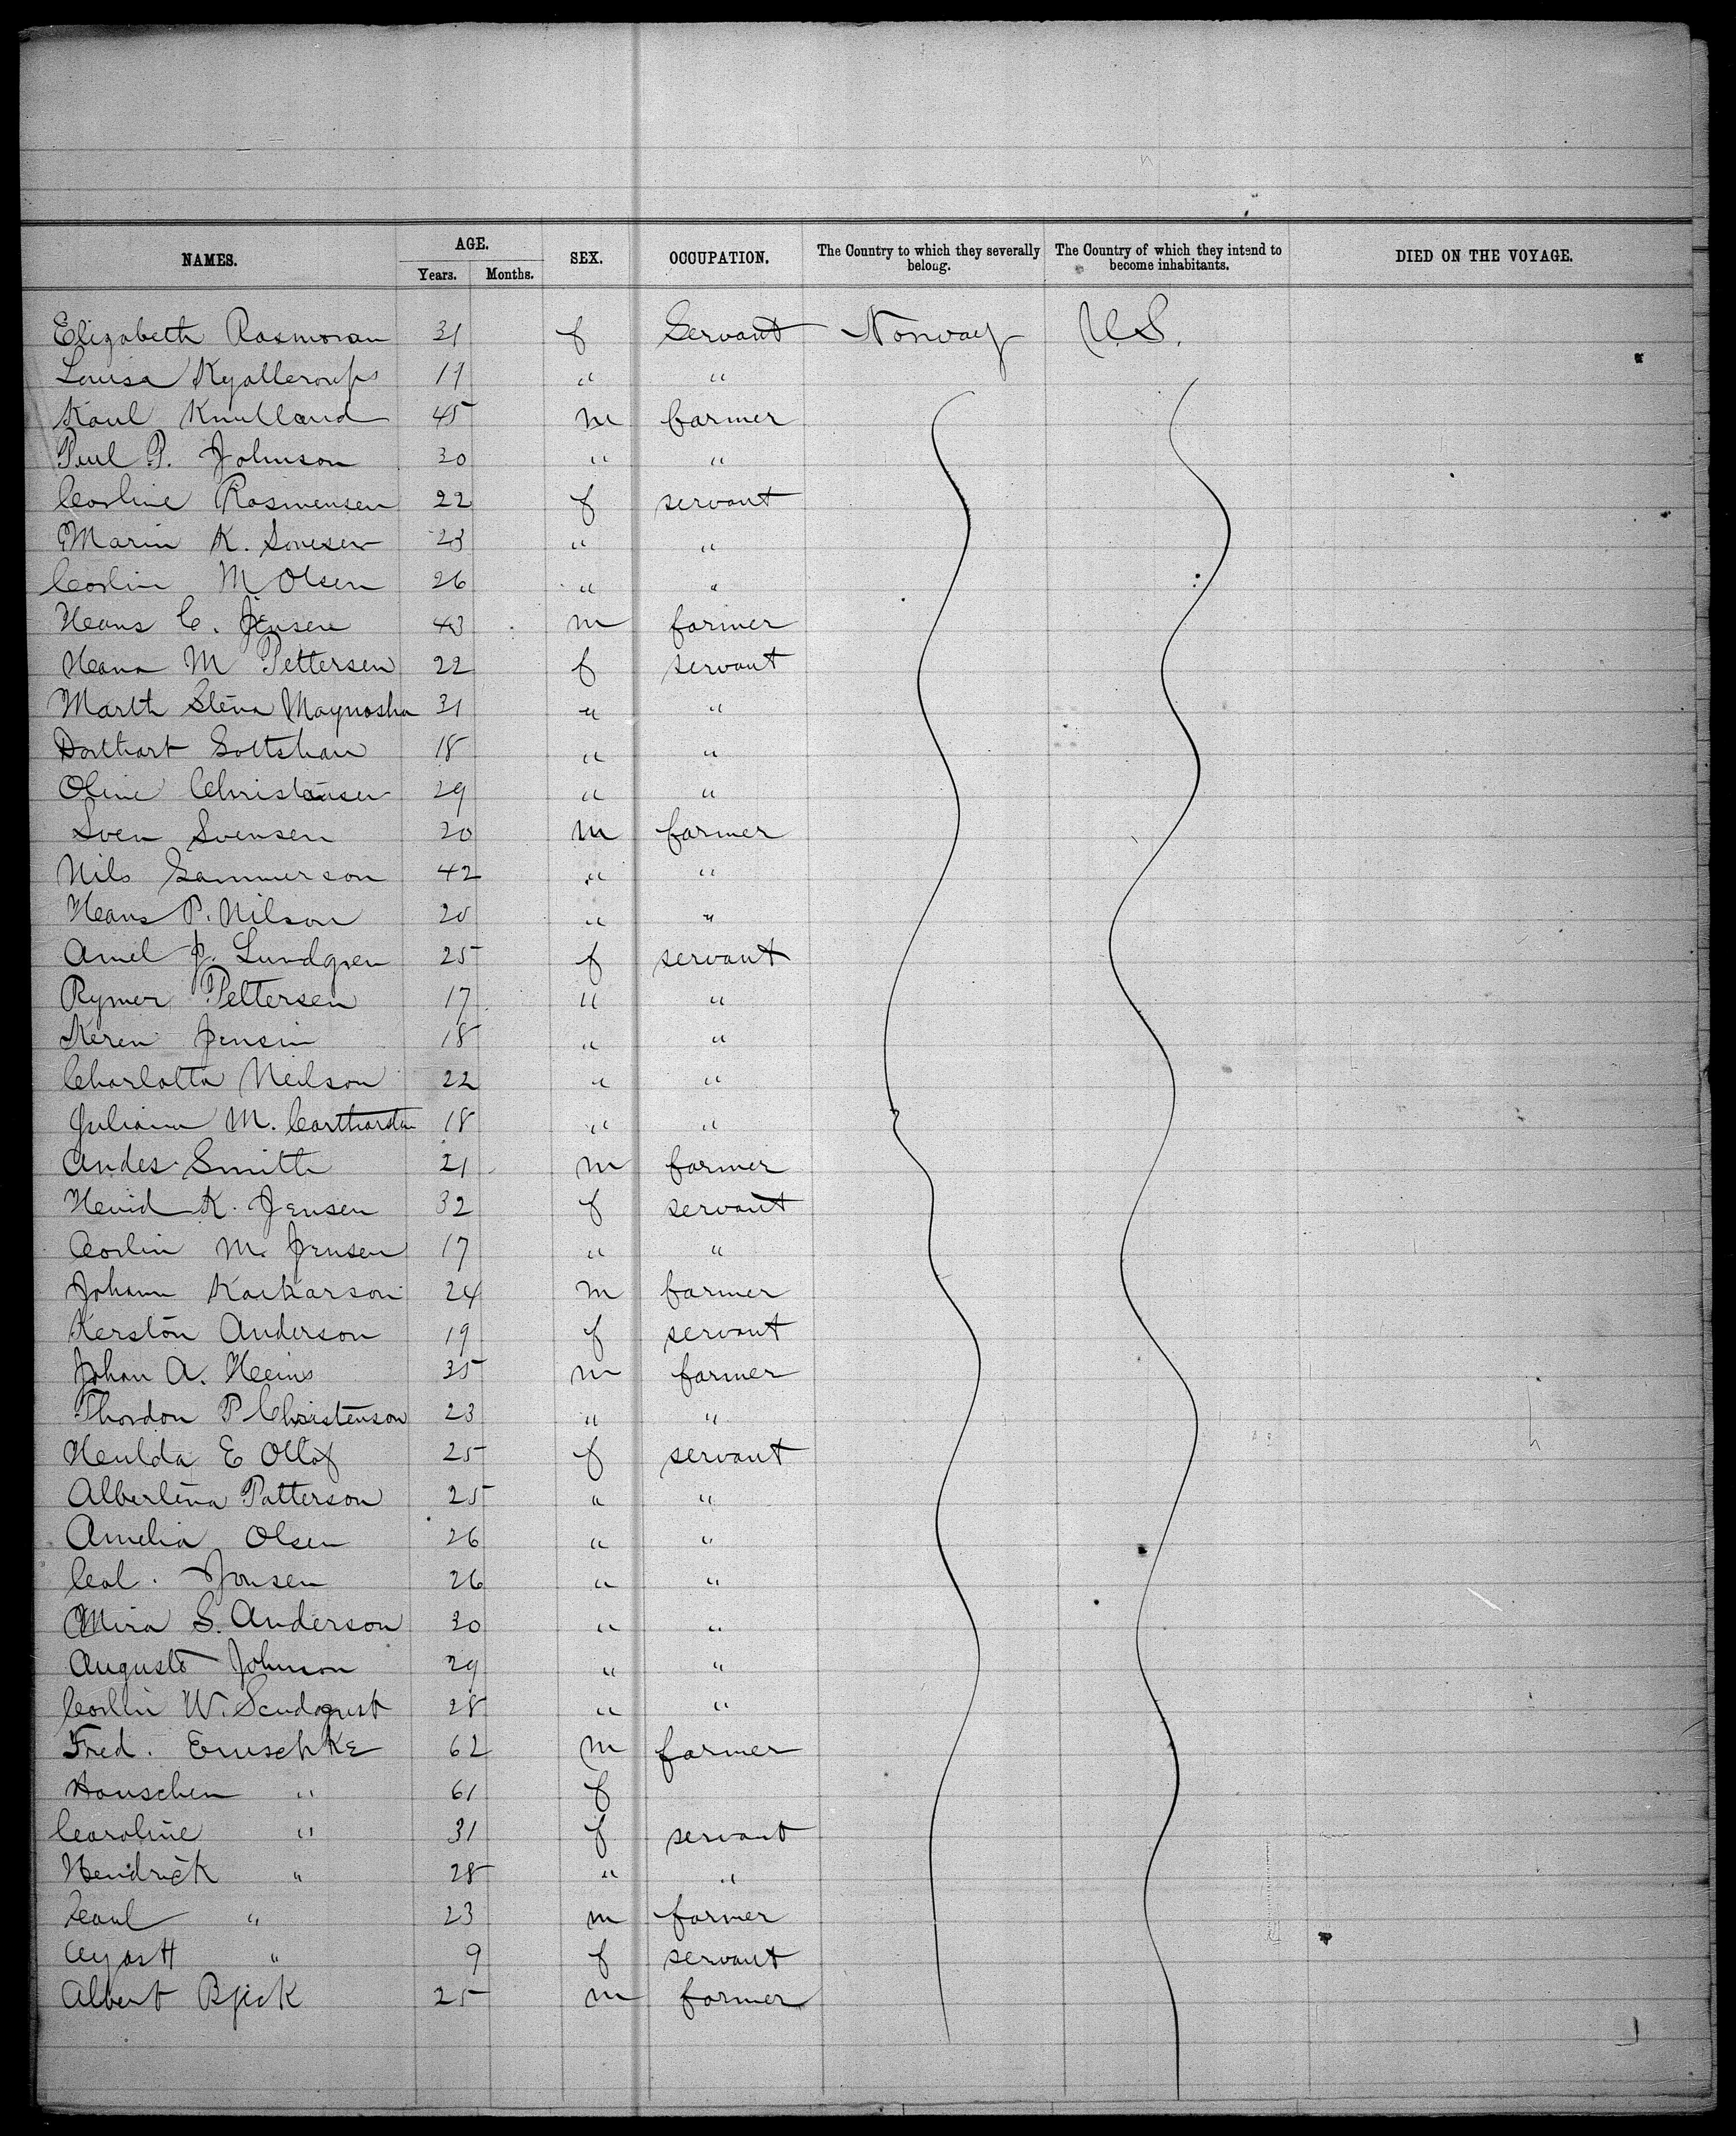 NAMES. AGE. SEX. OCCUPATION. The Country to which they severally belong. The Country of which they intend to become inhabitants. DIED ON THE VOYAGE.
Years. Months.
Elizabeth Rasmoran 31 f Servant Norway U.S.
Louisa 19 " "
Kaul Knulland 45 m farmer
Paul P. Johnson 30 " "
Carline Rasmensen 22 f servant
Marin K. 23 " "
Carlin M Olsen 26 " "
Heans C. Jensen 43 m farmer
Heana M Pettersen 22 f servant
Marth Stena Maynosha 31 " "
Gottshau 18 " "
Oline Christensen 29 " "
Sven Svensen 20 m farmer
Nils Gammerson 42 " "
Heans P. Nilson 20 " "
Amel J. Lundgren 25 f servant
Rymer Pettersen 17 " "
Keren Jensin 18 " "
Charlotta Neilson 22 " "
Juliana M. 18 " "
Andes Smith 21 m farmer
K. Jensen 32 f servant
Carlin M. Jensen 17 " "
Johann Karkarson 24 m farmer
Kerston Anderson 19 f servant
Johan A. Heins 35 m farmer
Thordon P Christenson 23 " "
Heulda E Ollof 25 f servant
Alberlena Patterson 25 " "
Amelia Olsen 26 " "
Cal. Jonsen 26 " "
Mira S. Anderson 30 " "
Augusto Johnson 29 " "
Carlin W. 28 " "
Fred. Eruschke 62 m farmer
Hauschen " 61 f
Caroline " 31 f servant
Hendrick " 28 " "
" 23 m farmer
" 9 f servant
Albert Bjick 25 m farmer